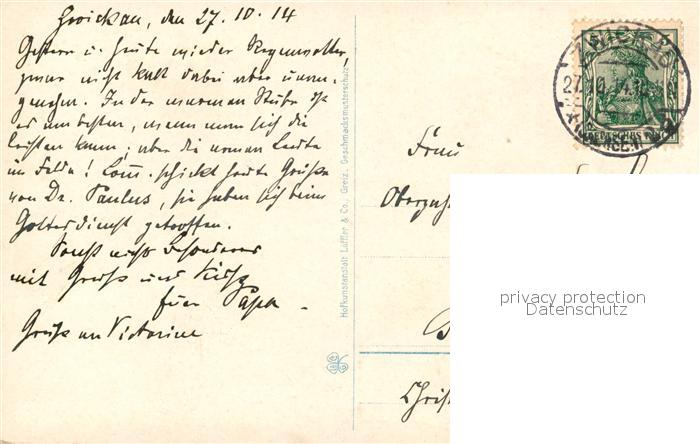 Zwickau, den 27. 10. 14
Gestern u. heute wieder Regenwetter,
zwar nicht kalt dabei aber unan-
genehm. In der warmen Stube ist
es am besten, wenn man sich die
leisten kann; aber die armen Leute
im Felde! schickt heute Grüße
von Dr. Paulus, sie haben sich beim
Gottesdienst getroffen.
Sonst nichts Besonderes
mit Gruß und Kuß
Euer Papa.
Gruß an Victorine
Hofkunstanstalt Löffler & Co., Greiz. Geschmacksmusterschutz
ZWICKAU
27.10.14
DEUTSCHES REICH
5
5
Frau
privacy protection
Datenschutz